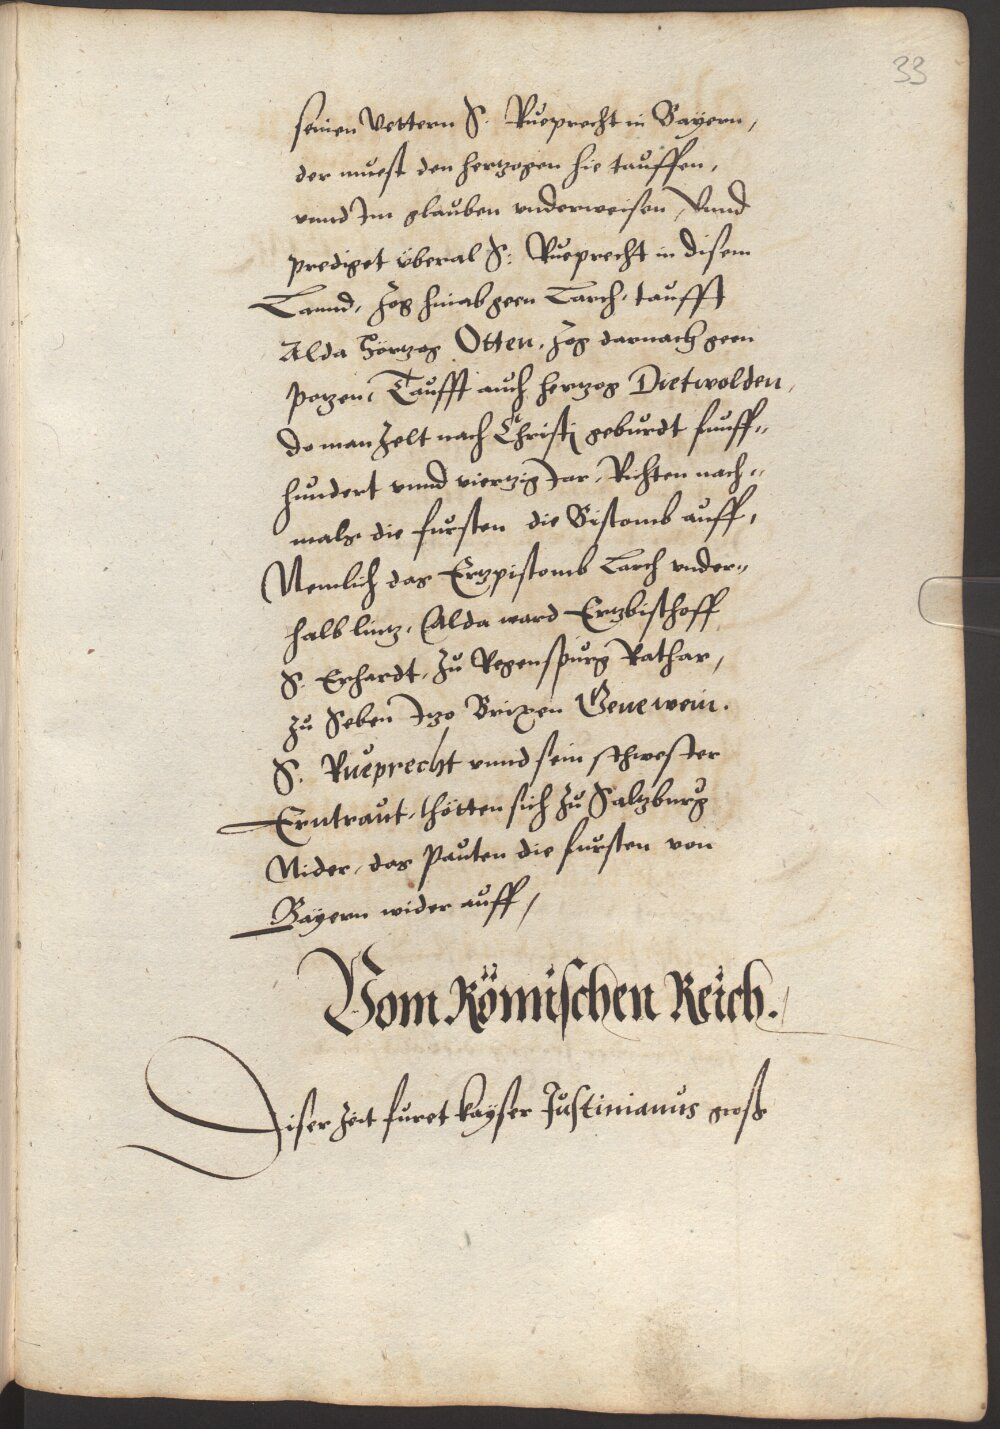 33
seinen Vettern S. Rueprecht in Bayern,
der muest den hertzogen hie tauffen,
vnnd Im glauben vnderweisen, Vnnd
prediget vberal S: Rueprecht in disem
Lannd, zog hinab geen Larch, taufft
Alda Hertzog Otten, zog darnach geen
Potzen, Taufft auch hertzog Dietwolden,
do man zelt nach Christi geburdt funff-
hundert vnnd viertzig Jar, Richten nach-
mals die fursten die Bistomb auff,
Nemlich das Ertzpistomb Larch vnder-
halb lintz, (alda ward Ertzbischoff
S. Erhardt, zu Regenspurg Rathar,
zu Seben Itzo Brixen Genewein.
S. Rueprecht vnnd sein schwester
Erntraut, thötten sich zu Saltzburg
Nider, das Pauten die fursten von
Bayern wider auff,
Vom Römischen Reich.
Diser Zeit furet kayser Justinianus groß